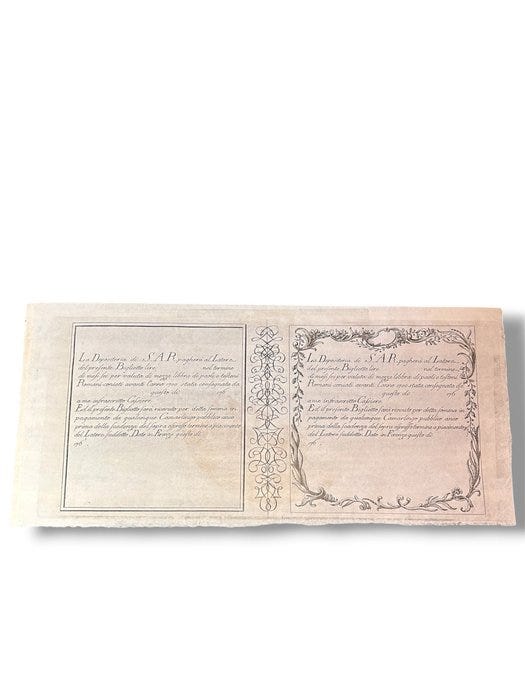 La Depositeria di S. A. R. pagherà al Latore
del presente Biglietto lire nel termine
di mesi sei per valuta di mezze libbre di paoli e testoni
Romani coniati avanti l'anno 1700 stata consegnata da
questo dì 176
a me infrascritto Cassiere.
Ed il presente Biglietto sarà ricevuto per detta somma in
pagamento da qualunque Camarlingo pubblico anco
prima della scadenza del sopra espresso termine a piacimento
del Latore suddetto. Dato in Firenze questo dì
176
La Depositeria di S. A. R. pagherà al Latore
del presente Biglietto lire nel termine
di mesi sei per valuta di mezze libbre di paoli e testoni
Romani coniati avanti l'anno 1700 stata consegnata da
questo dì 176
a me infrascritto Cassiere.
Ed il presente Biglietto sarà ricevuto per detta somma in
pagamento da qualunque Camarlingo pubblico anco
prima della scadenza del sopra espresso termine a piacimento
del Latore suddetto. Dato in Firenze questo dì
176